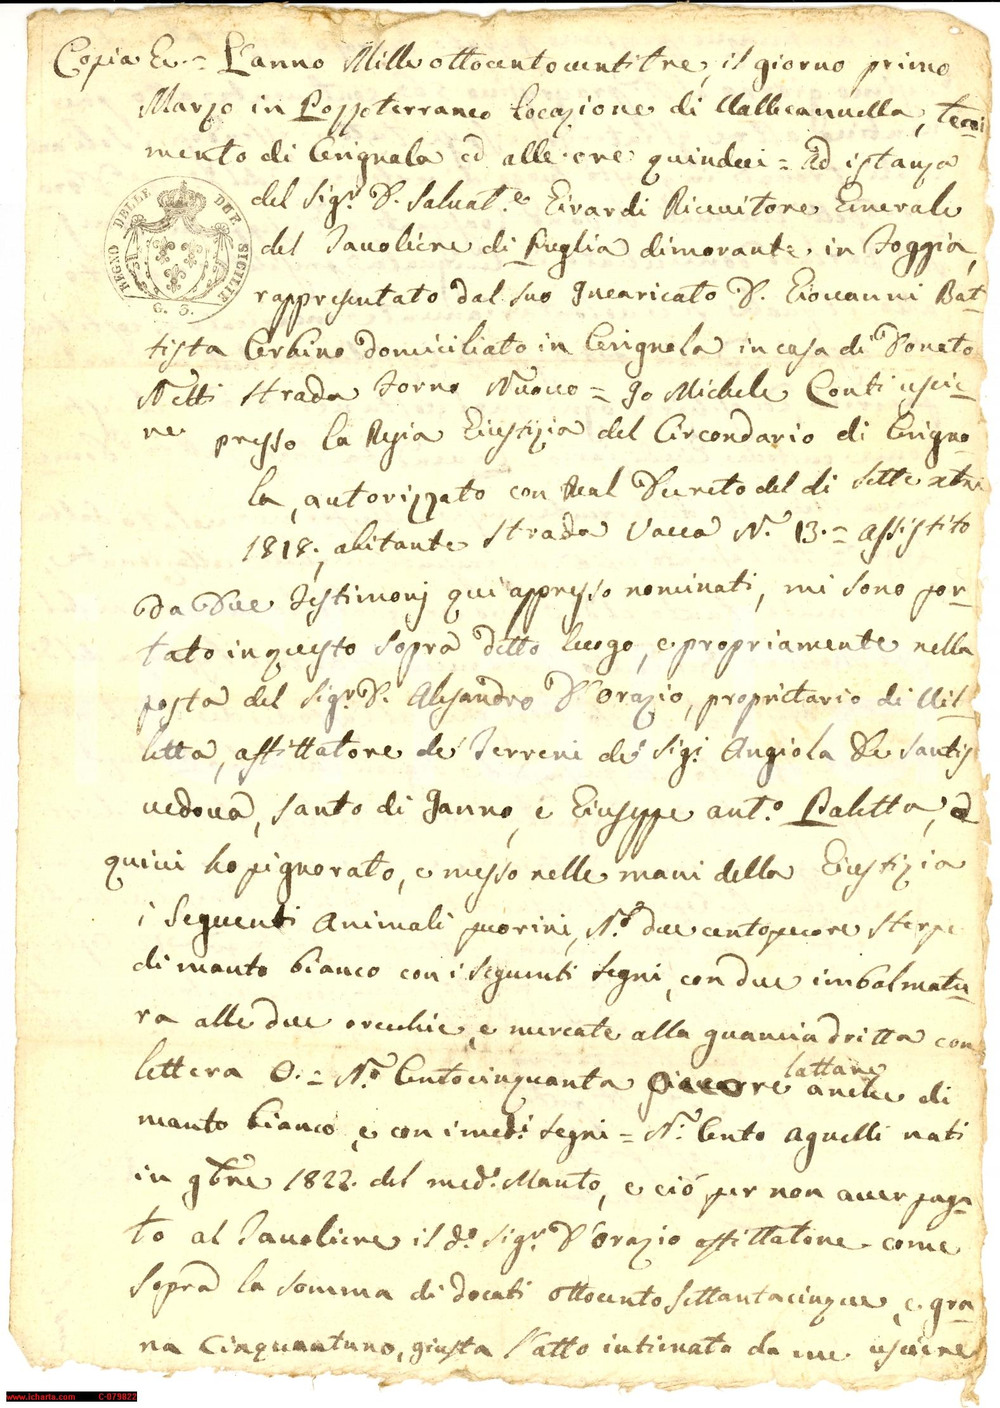 Copia &c.= L'anno Mille ottocentoventitre, il giorno primo
Marzo in Pozzoterraneo Locazione di Vallecannella, teni
mento di Cerignola ed alle ore quindici = Ad istanza
del Sigr. D. Salvat.e Girardi Ricevitore Generale
del Tavoliere di Puglia dimorante in Foggia,
rappresentato dal suo Incaricato D. Giovanni Bat-
tista Cerbino domiciliato in Cerignola in casa di Donato
Netti strada Forno Nuovo = Io Michele Conti uscie-
re presso la Regia Giustizia del Circondario di Cerigno
la, autorizzato con Real Decreto del di sette xbre
1818., abitante Strada Vacca N.° 13. = assistito
da due Testimonj qui appresso nominati, mi sono por-
tato in questo sopra detto luogo, e propriamente nella
posta del Sigr. D. Alesandro D'Orazio, proprietario di Vil-
letta, affittatore de' Terreni de' Sigi. Angiola de Santis
vedova, Santo di Ianno, e Giuseppe ant.o Paletta, e
quivi ho pignorato, e messo nelle mani della Giustizia
i seguenti Animali pecorini, N.o duecento pecore sterpe
di manto bianco con i seguenti segni, con due imbolmatu-
ra alle due orecchie, e mercate alla guancia dritta con
lettera O. = N.o Centocinquanta pecore lattare anche di
manto bianco, e con i med.i segni = N.o Cento agnelli nati
in 9bre 1822. del med.o Manto, e ciò per non aver paga-
to al Tavoliere il d.o Sigr. D'Orazio affittatore come
sopra la somma di docati ottocento settantacinque, e gra-
na cinquantuno, giusta l'atto intimato da me usciere
REGNO DELLE DUE SICILIE
www.icharta.com C-079822